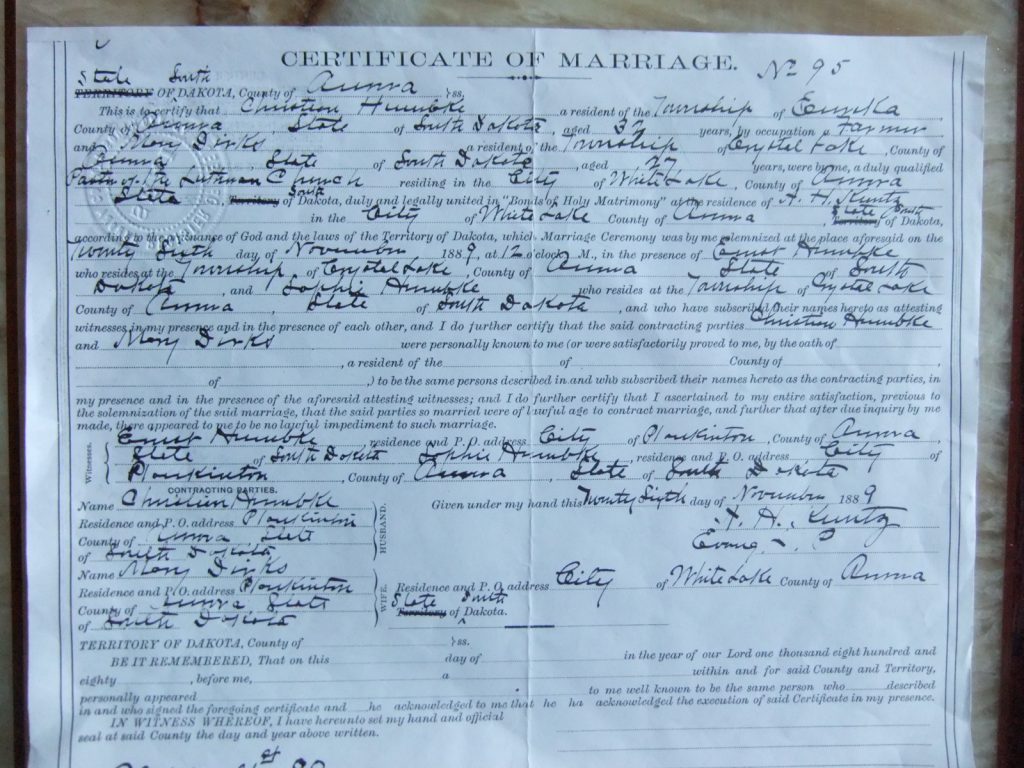 CERTIFICATE OF MARRIAGE. No 95
State South
TERRITORY OF DAKOTA, County of Aurora }ss.
This is to certify that Christian Humbke a resident of the Township of Eureka
County of Aurora, State of South Dakota, aged 32 years, by occupation a Farmer
and Mary Dirks a resident of the Township of Crystal Lake, County of
Aurora, State of South Dakota, aged 27 years, were by me, a duly qualified
Pastor of the Lutheran Church residing in the City of White Lake, County of Aurora
State South Territory of Dakota, duly and legally united in "Bonds of Holy Matrimony" at the residence of A. H. Kuntz
in the City of White Lake County of Aurora, State South Territory of Dakota,
according to the ordinance of God and the laws of the Territory of Dakota, which Marriage Ceremony was by me solemnized at the place aforesaid on the
Twenty Sixth day of November 1889, at 12 o'clock M., in the presence of Ernst Humbke
who resides at the Township of Crystal Lake, County of Aurora State of South
Dakota, and Sophie Humbke who resides at the Township of Crystal Lake
County of Aurora, State of South Dakota, and who have subscribed their names hereto as attesting
witnesses in my presence and in the presence of each other, and I do further certify that the said contracting parties Christian Humbke
and Mary Dirks were personally known to me (or were satisfactorily proved to me, by the oath of
, a resident of the of County of ,
of ,) to be the same persons described in and who subscribed their names hereto as the contracting parties, in
my presence and in the presence of the aforesaid attesting witnesses; and I do further certify that I ascertained to my entire satisfaction, previous to
the solemnization of the said marriage, that the said parties so married were of lawful age to contract marriage, and further that after due inquiry by me
made, there appeared to me to be no lawful impediment to such marriage.
Witnesses. Ernst Humbke, residence and P. O. address City of Plankinton, County of Aurora,
State of South Dakota Sophie Humbke, residence and P. O. address City of
Plankinton, County of Aurora, State of South Dakota
CONTRACTING PARTIES.
Name Christian Humbke Given under my hand this Twenty Sixth day of November 1889
Residence and P. O. address Plankinton HUSBAND. A. H. Kuntz
County of Aurora State Evang. L. P.
of South Dakota
Name Mary Dirks
Residence and P. O. address Plankinton WIFE. Residence and P. O. address City of White Lake County of Aurora
County of Aurora, State State South
of South Dakota Territory of Dakota.
TERRITORY OF DAKOTA, County of }ss.
BE IT REMEMBERED, That on this day of in the year of our Lord one thousand eight hundred and
eighty , before me, a within and for said County and Territory,
personally appeared to me well known to be the same person who described
in and who signed the foregoing certificate and he acknowledged to me that he ha acknowledged the execution of said Certificate in my presence.
IN WITNESS WHEREOF, I have hereunto set my hand and official
seal at said County the day and year above written.